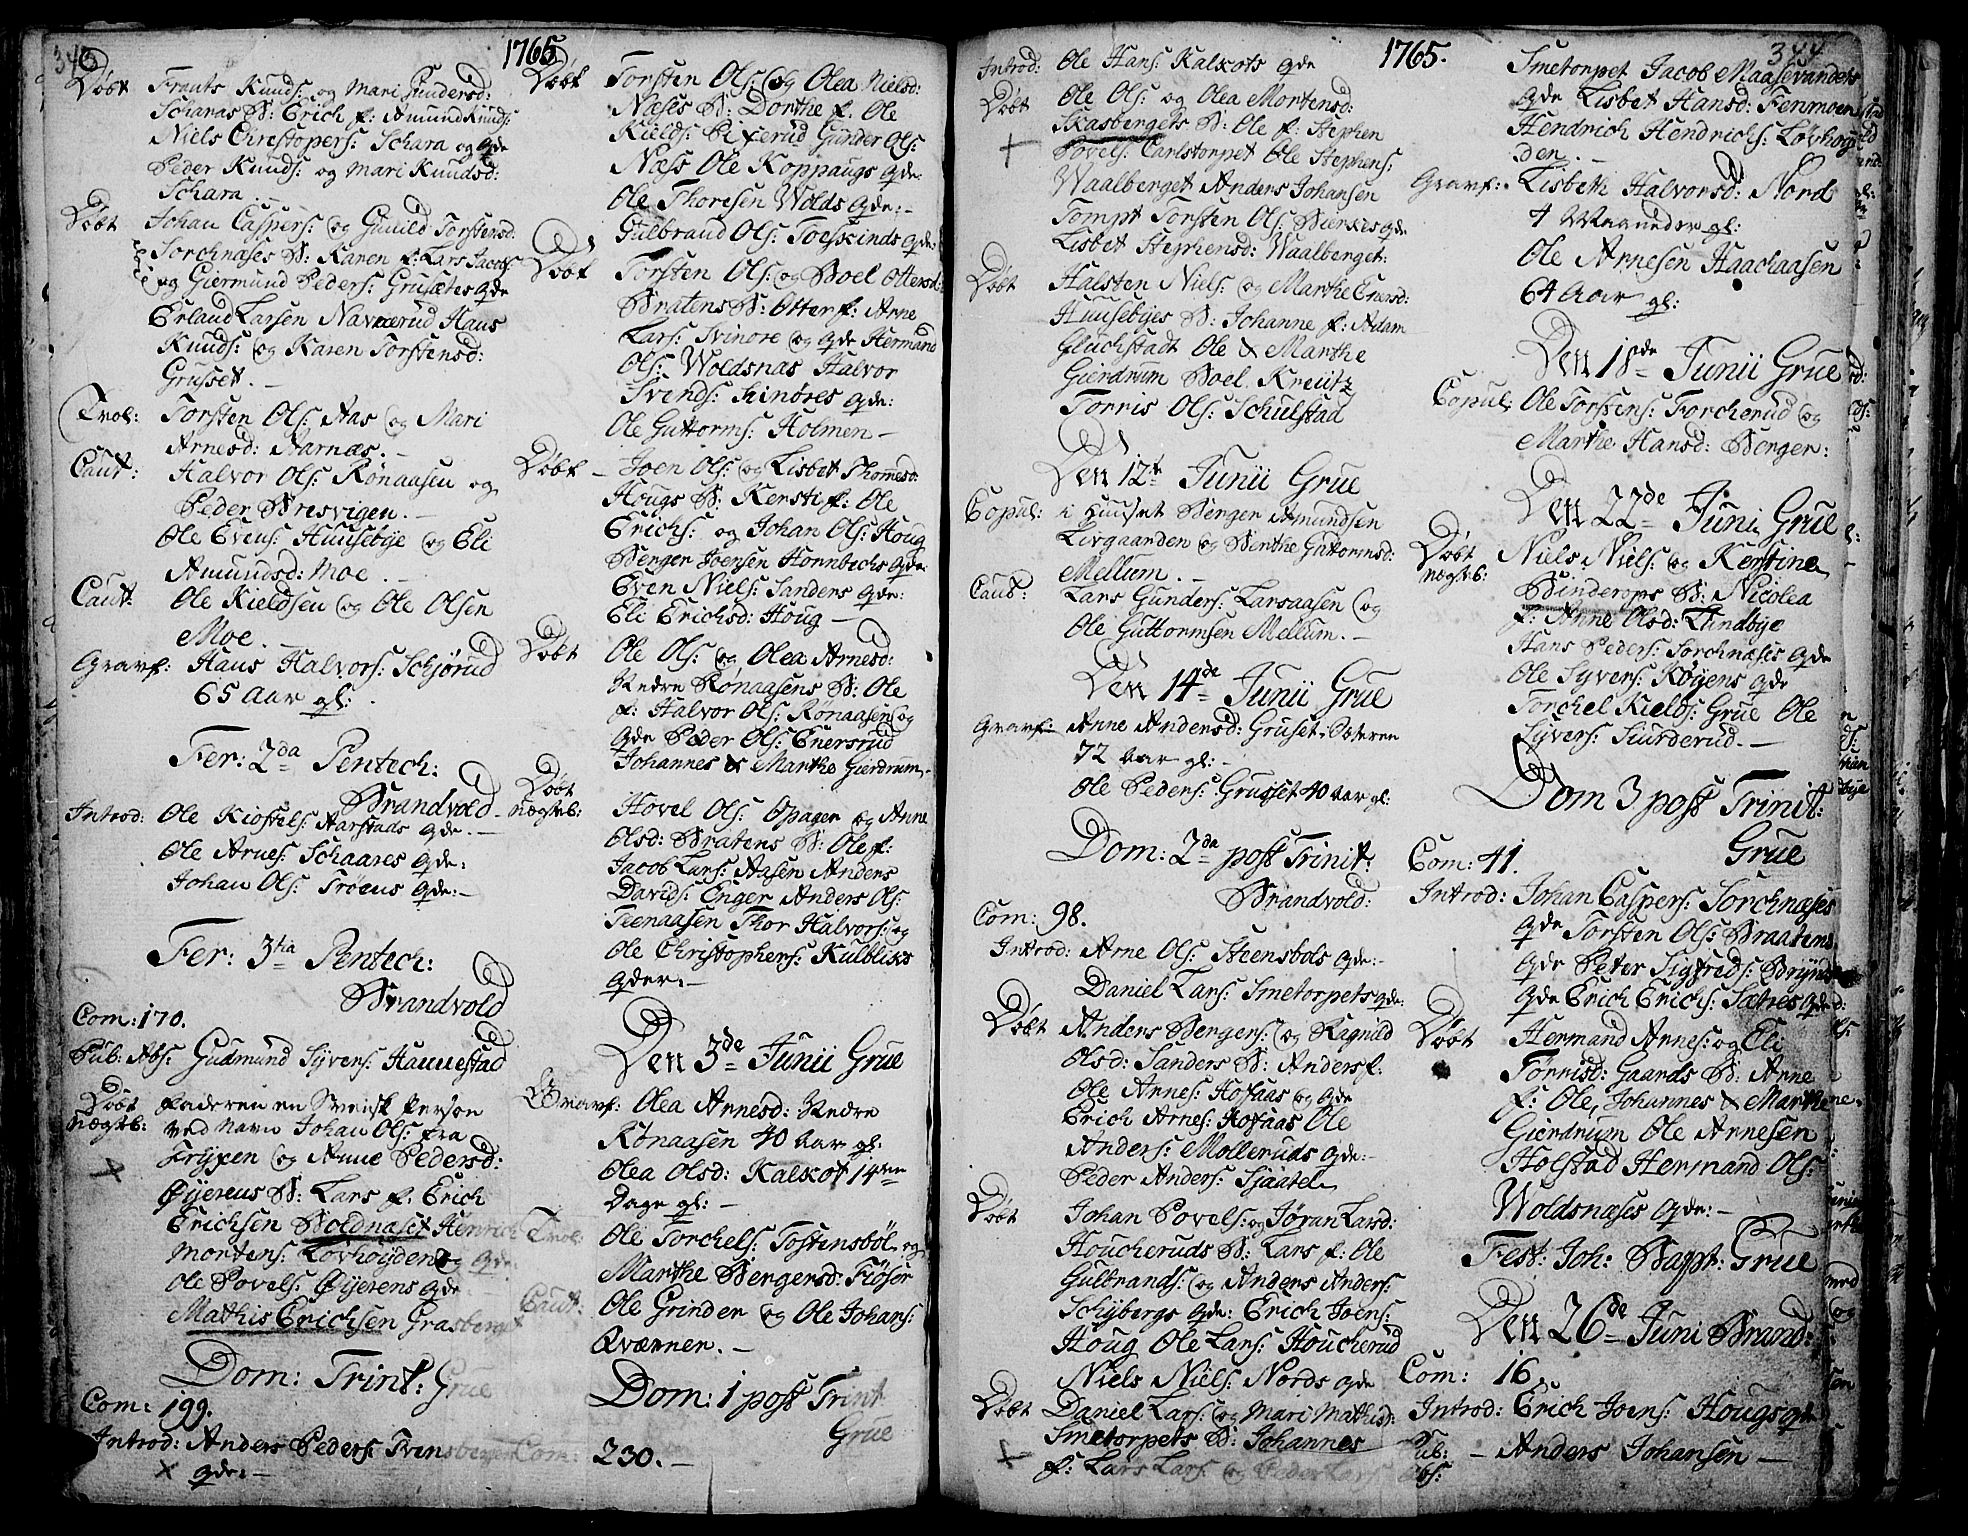 343
1765
Døbt Frants Knuds: og Mari Gundersd:
Scharas B: Erich f: Amund Knuds:
Niels Christophers: Schara og qde
Peder Knuds: og Mari Knudsd:
Schara.-
Døbt Johan Caspers: og Gunild Torstensd:
Torchnæses B: Karen f: Lars Jacobs:
og Giermund Peders: Grusætes qde
Erland Larsen Navnerud Hans
Knuds: og Karen Torstensd:
Grusset.-
Trol: Torsten Ols: Aas og Mari
Arnesd: Aarnæs.-
Caut: Halvor Ols: Rønaasen og
Peder Bresvigen.-
Ole Evens: Huusebye og Eli
Amundsd: Moe.-
Caut: Ole Kieldsen og Ole Olsen
Moe.-
Gravf: Hans Halvors: Schjørud
65 aar gl:
Fer: 2da Pentech:
Brandvold
Introd: Ole Kiostels: Aarstads qde.-
Ole Arnes: Schaares qde:
Johan Ols: Trøens qde:-
Fer: 3tia Pentech:
Brandvold
Com: 170.
Pub: Abs: Gudmund Syvers: Hannestad
Døbt nægtb: Faderen en Svensk Person
ved Navn Johan Ols: fra
Fryxen og Anne Pedersd:
Øyerens B: Lars f: Erich
Erichsen Boldnæset Henrich
Mortens: Løvhøyden og qde:
Ole Povels: Øyerens qde
Mathis Erichsen Grasberget
Dom: Trinit: Grue
Com: 199.
Introd: Anders Peders: Tvensbergets
qde:-
Døbt Torsten Ols: og Olea Nielsd:
Næses B: Dorthe f: Ole
Kields: Gunder Ols:
Næss Ole Koppaugs qde:
Ole Thoresen Wolds qde:-
Gulbrand Ols: Toeskinds qde:
Døbt Torsten Ols: og Boel Ottersd:
Bratens B: Otter f: Arne
Lars: Svinore og qde Hermand
Ols: Woldsnas Halvor
Svends: Kinøres qde:
Ole Guttorms: Holmen-
Døbt - Joen Ols: og Lisbet Thomesd:
Hougs B: Kersti f: Ole
Erichs: og Johan Ols: Houg
Berger Joensen Hornbechs qde:
Even Niels: Sanders qde:
Eli Erichsd: Houg-
Døbt Ole Ols: og Olea Arnesd:
Nedre Rønaasens B: Ole
f: Halvor Ols: Rønaasen og
qde Peder Ols: Enersrud
Johannes & Marthe Gierdrum.-
Døbt nægtb: Hovel Ols: Opager og Anne
Olsd: Bratens B: Ole f:
Jacob Lars: Aasen Anders
Davids: Enger Anders Ols:
Teenaasen Thor Halvors: og
Ole Christophers: Kulbliks
qder:-
Den 3de Junii Grue
Gravf: Olea Arnesd: Nedre
Rønaasen 40 aar gl:
Olea Olsd: Kalkot 14ten
Dage gl:-
Trol: Ole Torchels: Tostensbøl og
Marthe Bergersd: Fløsør
Caut: Ole Grinder og Ole Johans:
Qværnen.-
Dom: 1 post Trint
Grue
Com: 230.-
344
1765.
Introd: Ole Hans: Kalkots qde
Døbt Ole Ols: og Olea Mortensd:
Skasbergets B: Ole f: Stephen
Povels: Carlstorpet Ole Stephens:
Waalberget Anders Johansen
Tompt Torsten Ols: qde
Lisbet Stephensd: Waalberget:
Døbt Halsten Niels: og Marthe Enersd:
Huusebyes B: Johanne f: Adam
Gluchstadt Ole & Marthe
Gierdrum Boel Kreütz
Torris Ols: Schulstad
Den 12te Junii Grue
Copul: i Huuset Berger Amundsen
Livgaarden og Birthe Guttormsd:
Mellum.-
Caut: Lars Gunders: Larsaasen og
Ole Guttormsen Mellum.-
Den 14de Junii Grue
Gravf:- Anne Andersd: Gruset: Sæteren
72 aar gl:-
Ole Peders: Grusset 40 aar gl:
Dom: 2da post Trinit:
Brandvold:
Com: 98.
Introd: Arne Ols: Steensbols qde:-
Daniel Lars: Smetorpets qde:
Døbt Anders Bergers: og Ragnild
Olsd: Sanders B: Anders f:
Ole Arnes: Hofaas og qde
Erich Arnes: Hofaas Ole
Anders: Molleruds qde:-
Peder Anders: Sjaatel
Døbt Johan Povels: og Jøran Larsd:
Houcheruds B: Lars f: Ole
Gulbrands: og Anders Anders:
Schybergs qde: Erich Joens:
Houg Ole Lars: Houcherud
Niels Niels: Nords qde
Døbt Daniel Lars: og Mari Mathisd:
Smetorpets B: Johannes
f: Lars Lars: og Peder Lars:
Smetorpet Jacob Maasevanders
qde Lisbet Hansd: Fenmoen
Hendrich Hendrichs: Løvhøy
den.-
Gravf:- Lisbeth Halvorsd: Nord
4 Maaneder gl:
Ole Arnesen Haachaasen
64 aar gl:
Den 18de Junii Grue
Copul: Ole Torstens: Torcherud og
Marthe Hansd: Berger:
Den 22de Juni Grue
Døbt nægtb: Niels Niels: og Kerstine
Binderops B: Nicolea
f: Anne Olsd: Lundbye
Hans Peders: Torchnæses qde
Ole Syvers: Køgens qde
Torchel Kields: Grue Ole
Syvers: Siurderud.-
Dom 3 post Trinit:
Grue
Com: 41.
Introd: Johan Caspers: Torchnæses
qde Torsten Ols: Braatens
qde Peter Sigfreds: Brynds
qde Erich Erichs: Sætres qde
Døbt Hermand Arnes: og Eli
Tørrisd: Gaards B: Arne
f: Ole, Johannes & Marthe
Gierdrum Ole Arnesen
Holstad Hermand Ols:
Woldsnæses qde:-
Fest: Joh: Bapt: Grue
Den 26de Juni Brand:
Com: 16.
Introd: Erich Joens: Hougs qde
Pub: Abs: - Anders Johansen-